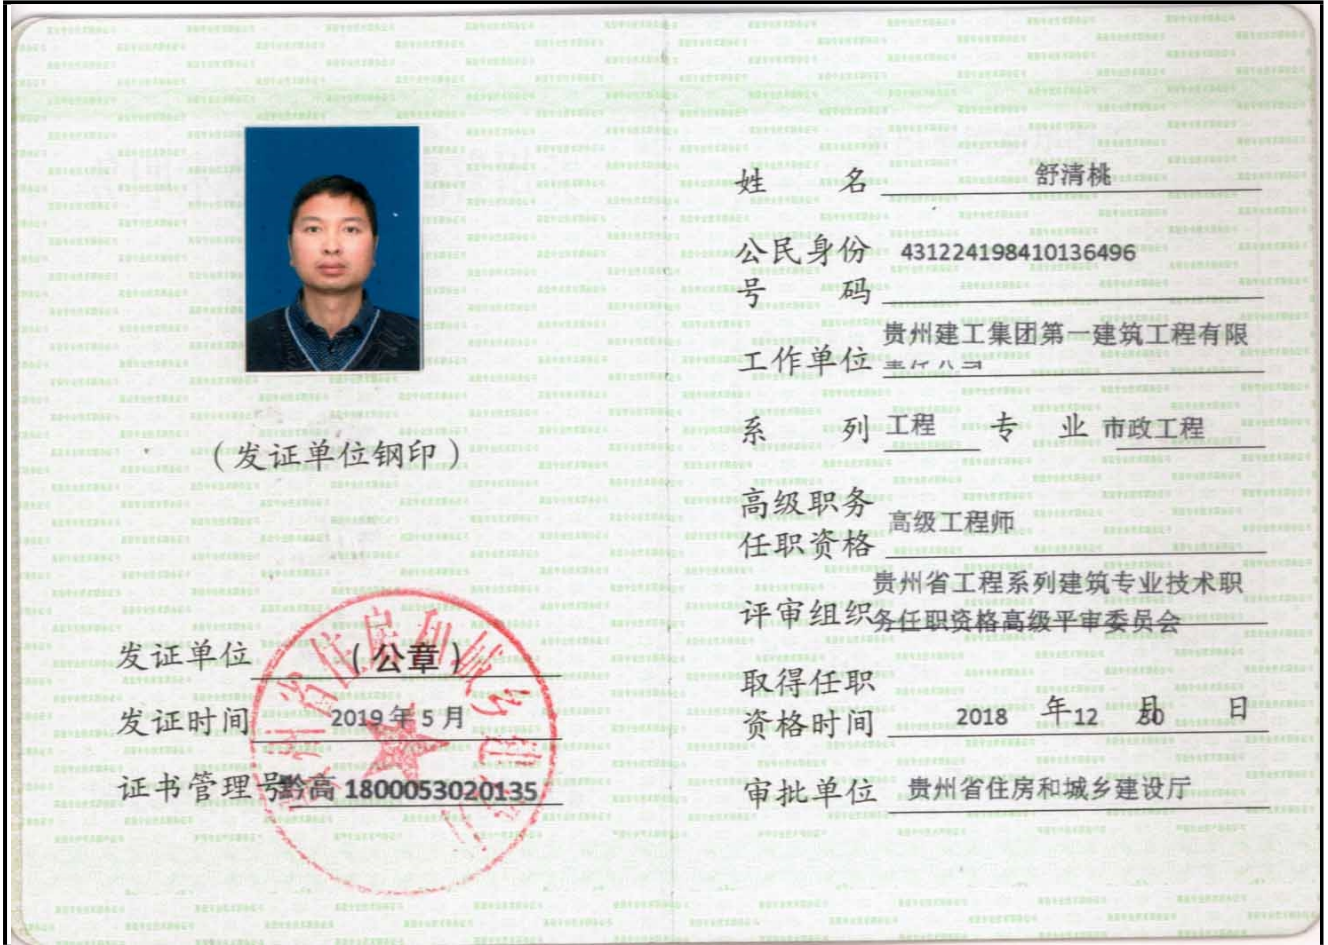 （发证单位钢印）
发证单位 （公章）
发证时间 2019 年 5 月
证书管理号黔高 1800053020135
姓 名 舒清桃
公民身份 431224198410136496
号 码
工作单位 贵州建工集团第一建筑工程有限
责任公司
系 列 工程 专 业 市政工程
高级职务
任职资格 高级工程师
贵州省工程系列建筑专业技术职
评审组织 务任职资格高级平审委员会
取得任职
资格时间 2018 年 12 月 30 日
审批单位 贵州省住房和城乡建设厅